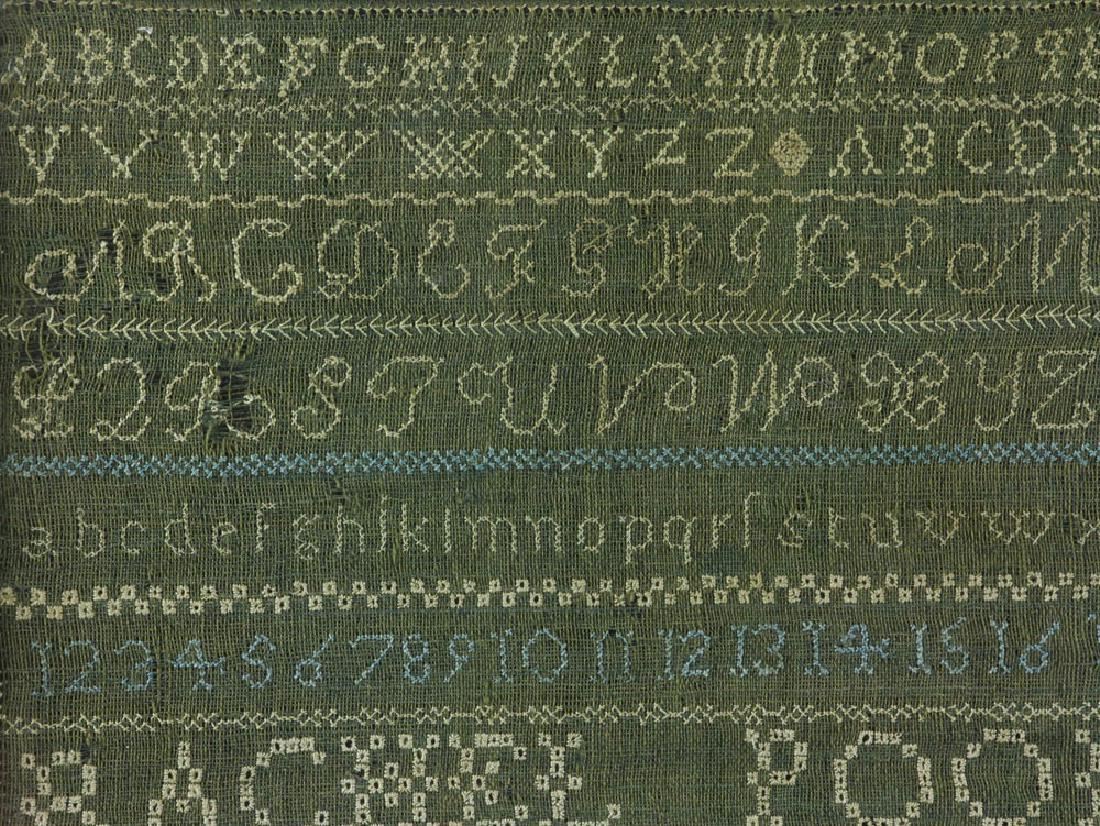 A B C D E F G H I J K L M N O P Q R
V V W W W X Y Z Z A B C D E
A B C D E F G H I K L M
P Q R S T U V W X Y Z
a b c d e f g h i k l m n o p q r ſ s t u v w x
1 2 3 4 5 6 7 8 9 10 11 12 13 14 15 16
RACHEL POO